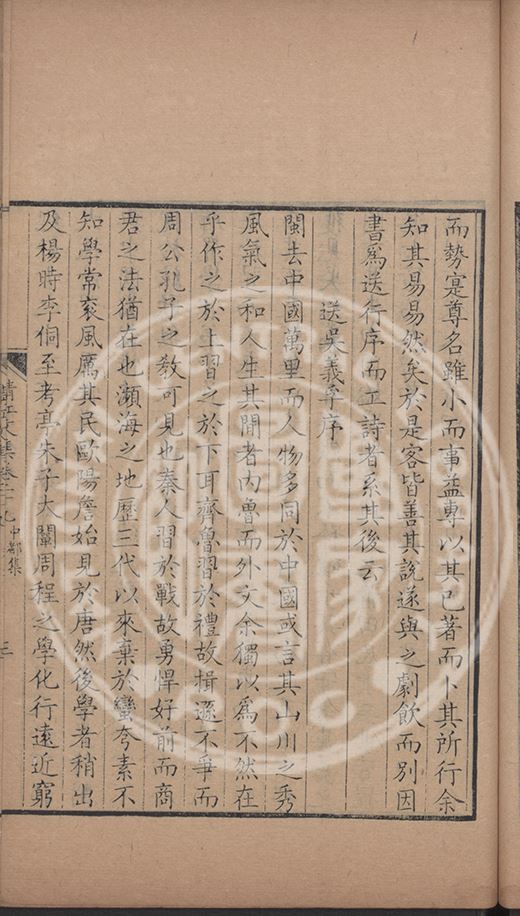 而勢寔尊名雖小而事益專以其已著而卜其所行余
知其易易然矣於是客皆善其說遂與之劇飲而別因
書為送行序而工詩者系其後云
送吳義孚序
閩去中國萬里而人物多同於中國或言其山川之秀
風氣之和人生其間者內魯而外文余獨以為不然在
乎作之於上習之於下耳齊魯習於禮故揖遜不爭而
周公孔子之教可見也秦人習於戰故勇悍好前而商
君之法猶在也瀕海之地歷三代以來棄於蠻夸素不
知學常袞風厲其民歐陽詹始見於唐然後學者稍出
及楊時李侗至考亭朱子大闡周程之學化行遠近窮
清江文集卷二十九 中都集 三